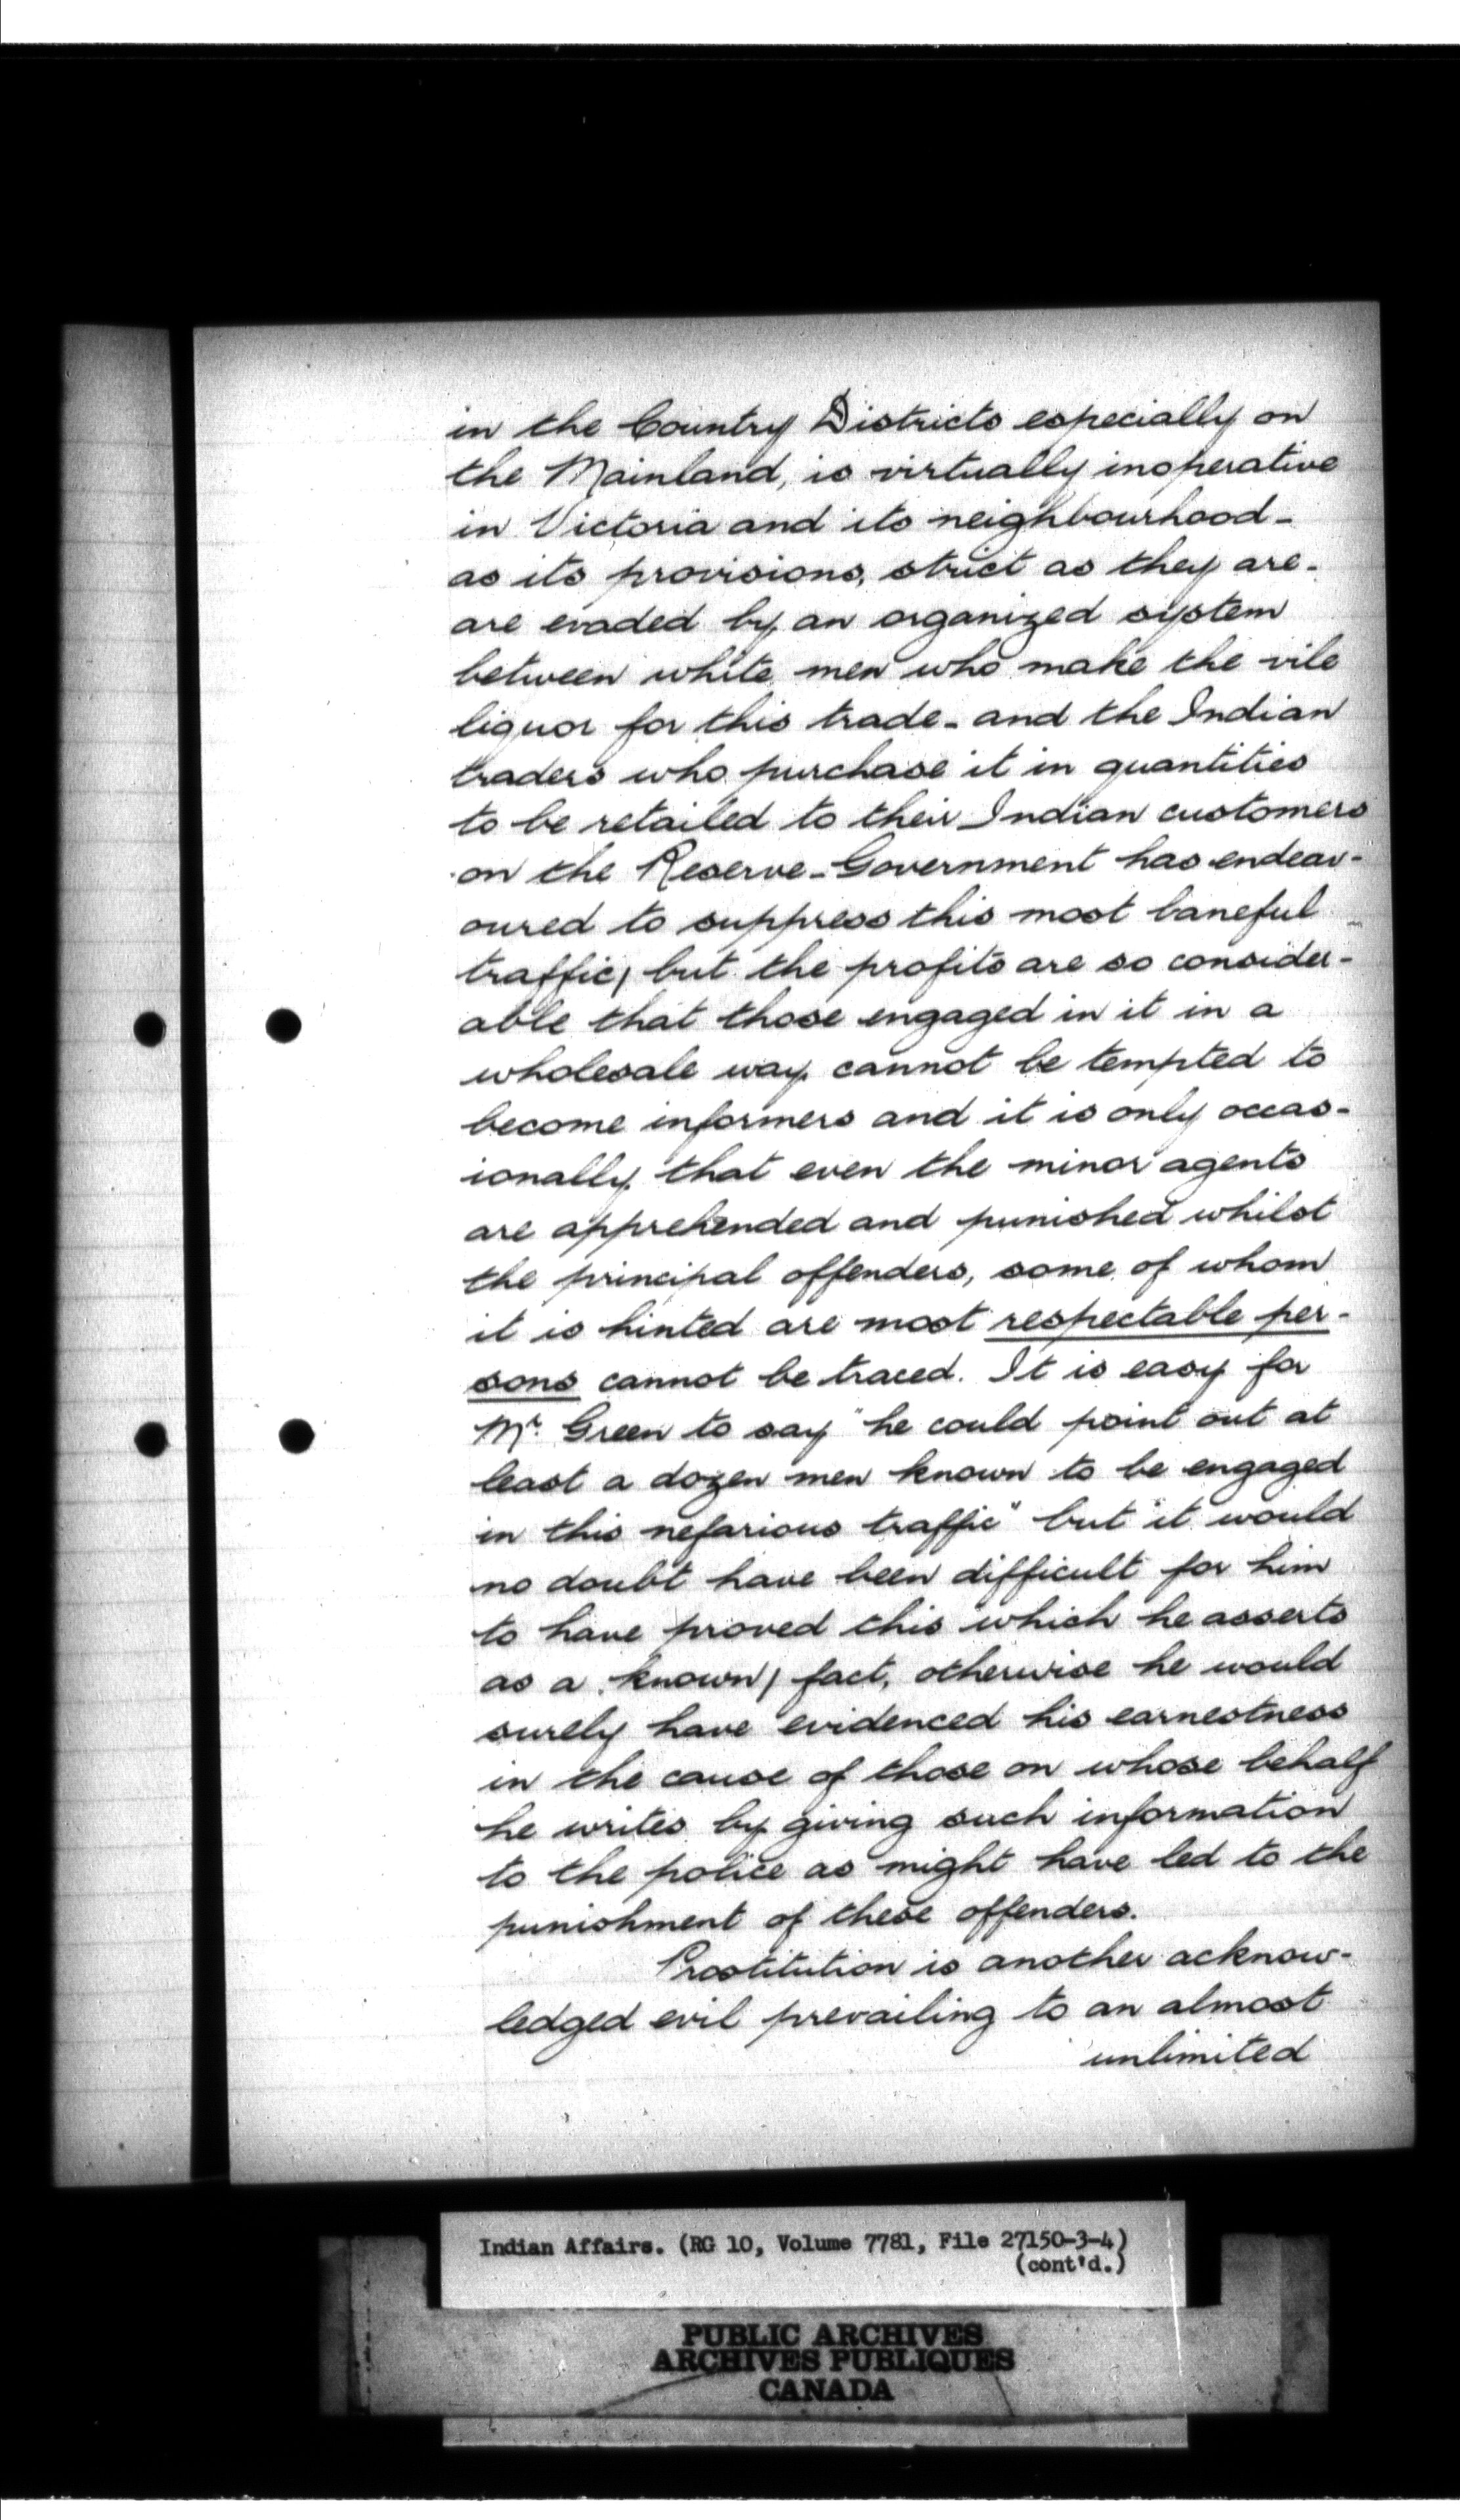 in the Country Districts especially on
the Mainland, is virtually inoperative
in Victoria and its neighbourhood -
as its provisions, strict as they are -
are evaded by an organized system
between white men who make the vile
liquor for this trade - and the Indian
traders who purchase it in quantities
to be retailed to their Indian customers
on the Reserve - Government has endeav-
oured to suppress this most baneful
traffic, but the profits are so consider-
able that those engaged in it in a
wholesale way cannot be tempted to
become informers and it is only occas-
ionally that even the minor agents
are apprehended and punished whilst
the principal offenders, some of whom
it is hinted are most respectable per-
sons cannot be traced. It is easy for
Mr. Green to say "he could point out at
least a dozen men known to be engaged
in this nefarious traffic" but it would
no doubt have been difficult for him
to have proved this which he asserts
as a known, fact, otherwise he would
surely have evidenced his earnestness
in the cause of those on whose behalf
he writes by giving such information
to the police as might have led to the
punishment of these offenders.
Prostitution is another acknow-
ledged evil prevailing to an almost
unlimited
Indian Affairs. (RG 10, Volume 7781, File 27150-3-4)
(cont'd.)
PUBLIC ARCHIVES
ARCHIVES PUBLIQUES
CANADA